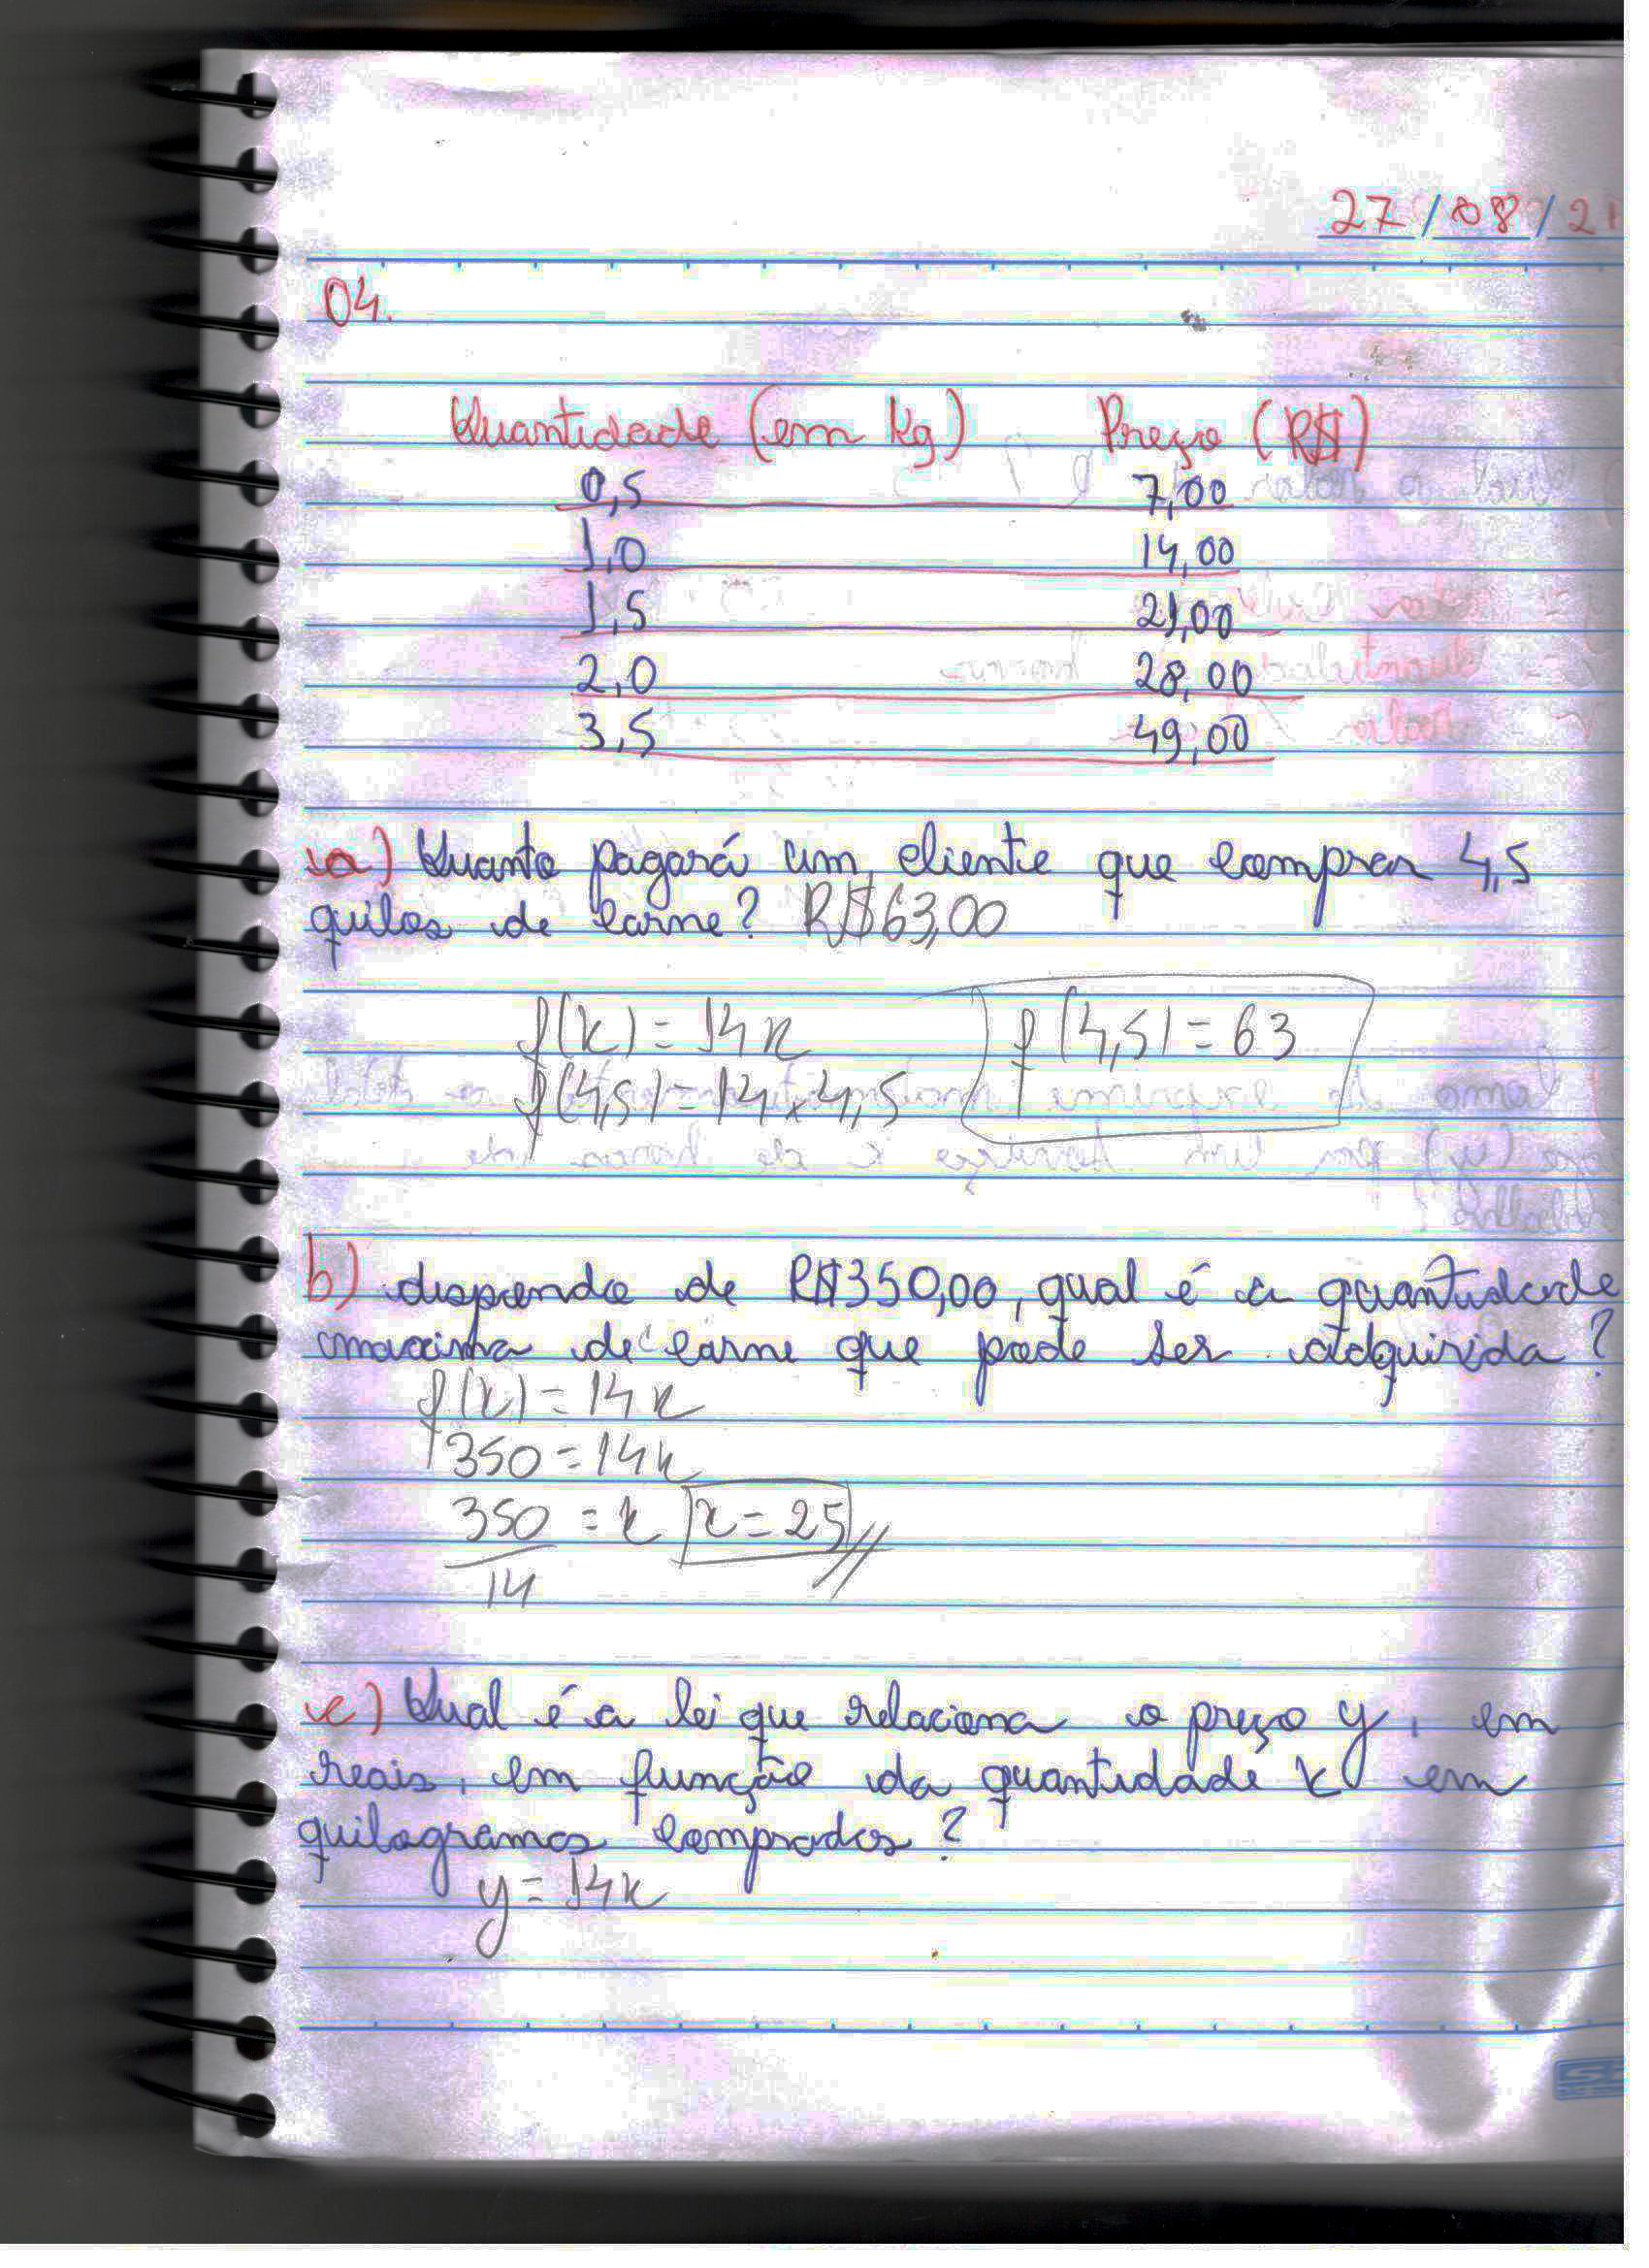 27/08/21
04.
Quantidade (em kg) Preço (R$)
0,5 7,00
1,0 14,00
1,5 21,00
2,0 28,00
3,5 49,00
a) Quanto pagará um cliente que comprar 4,5
quilos de carne? R$63,00
f(x) = 14x f(4,5) = 63
f(4,5) = 14 x 4,5
b) dispondo de R$350,00, qual é a quantidade
maxima de carne que pode ser adquirida?
f(x) = 14x
350 = 14x
350 = x x = 25
14
c) Qual é a lei que relaciona o preço y, em
reais, em função da quantidade x em
quilogramos comprados?
y = 14x